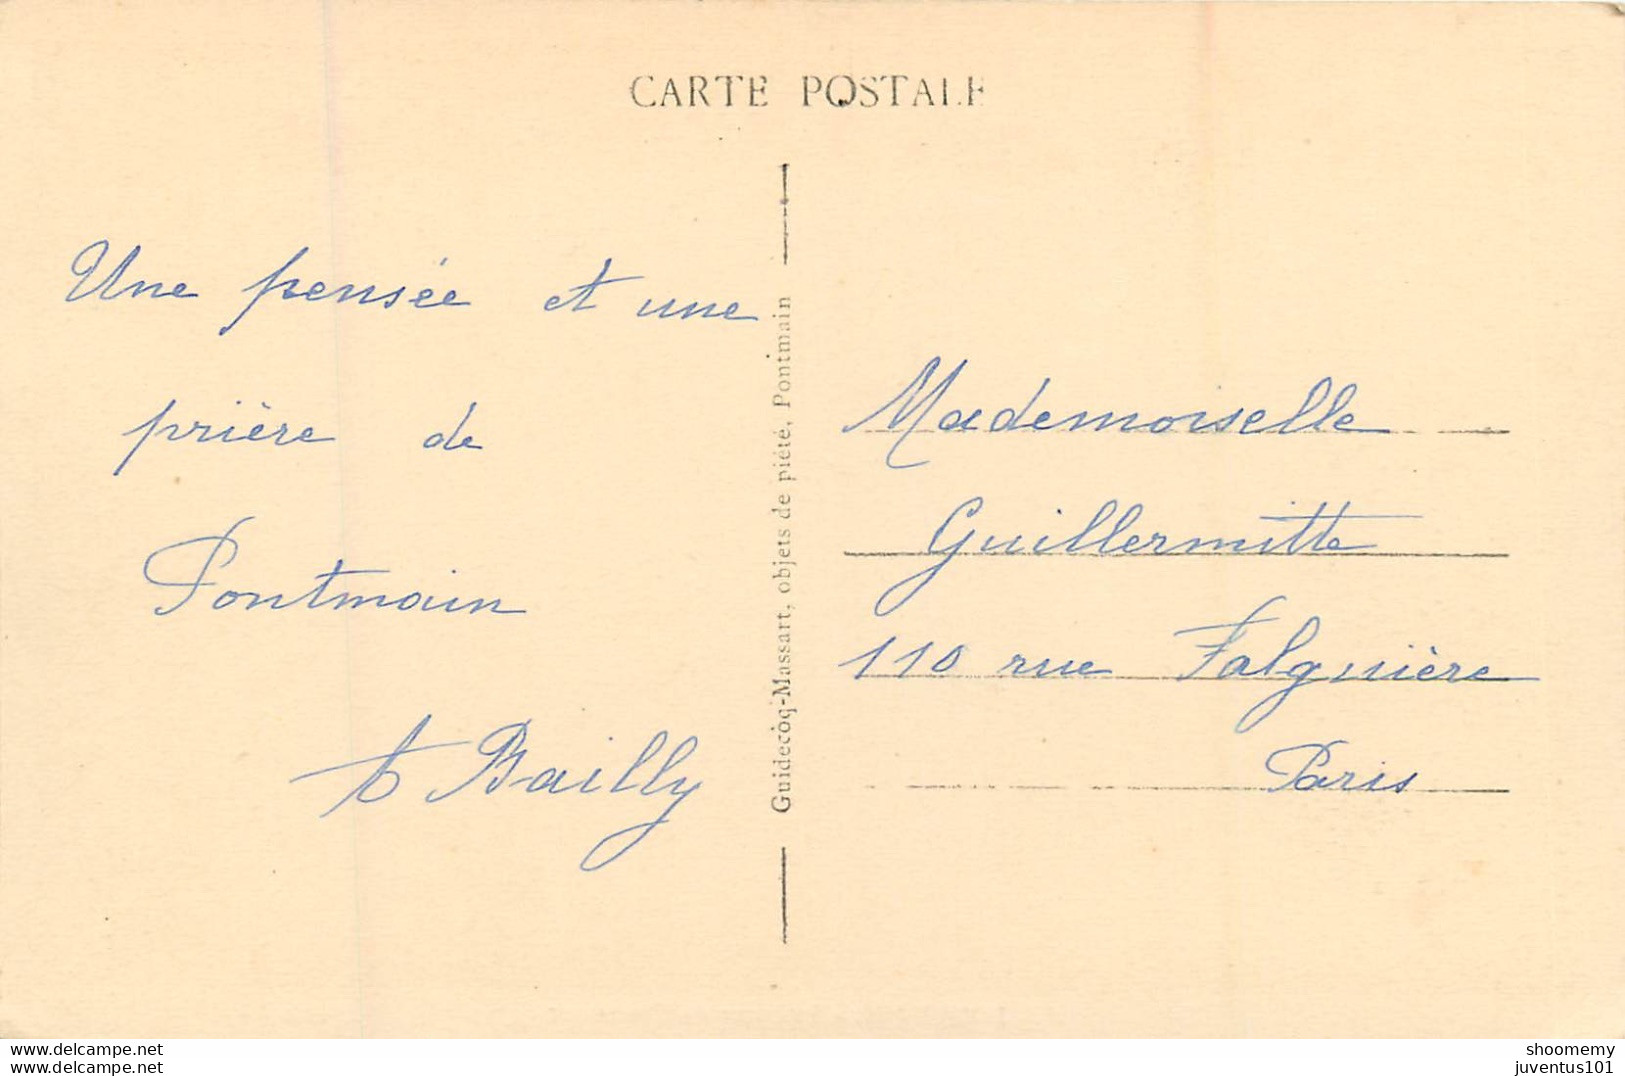 CARTE POSTALE
Une pensée et une
prière de
Pontmain
Bailly
Guidecoq-Massart, objets de piété, Pontmain
Mademoiselle
Guillermitte
110 rue Falguière
Paris
www.delcampe.net
www.delcampe.net
shoomemy
juventus101